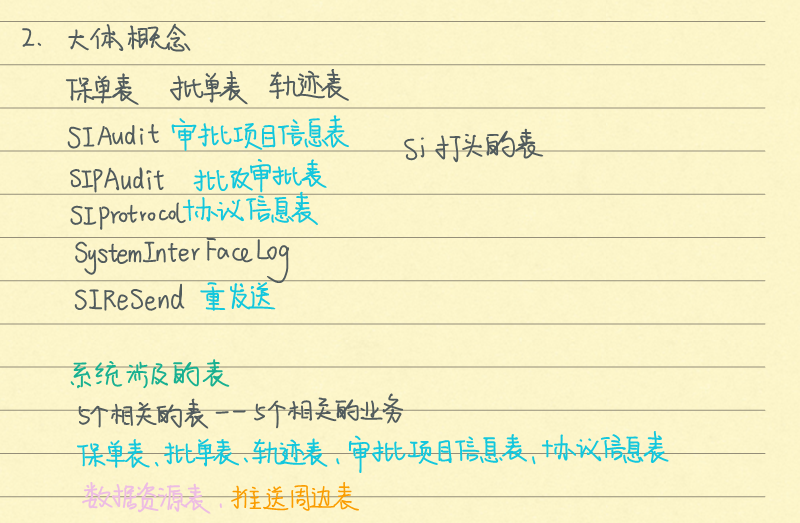 2. 大体概念
保单表 批单表 轨迹表
SIAudit 审批项目信息表
Si 打头的表
SIPAudit 批改审批表
SIProtrocol 协议信息表
SystemInterFaceLog
SIReSend 重发送
系统涉及的表
5个相关的表--5个相关的业务
保单表、批单表、轨迹表、审批项目信息表、协议信息表
数据资源表、推送周边表